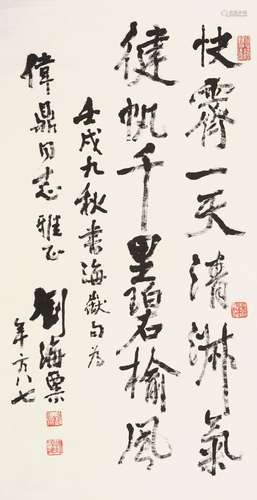 快霽一天清淑氣
健帆千里碧榆風
壬戌九秋書海嶽句為
偉鼎同志雅正
劉海粟
年方八七